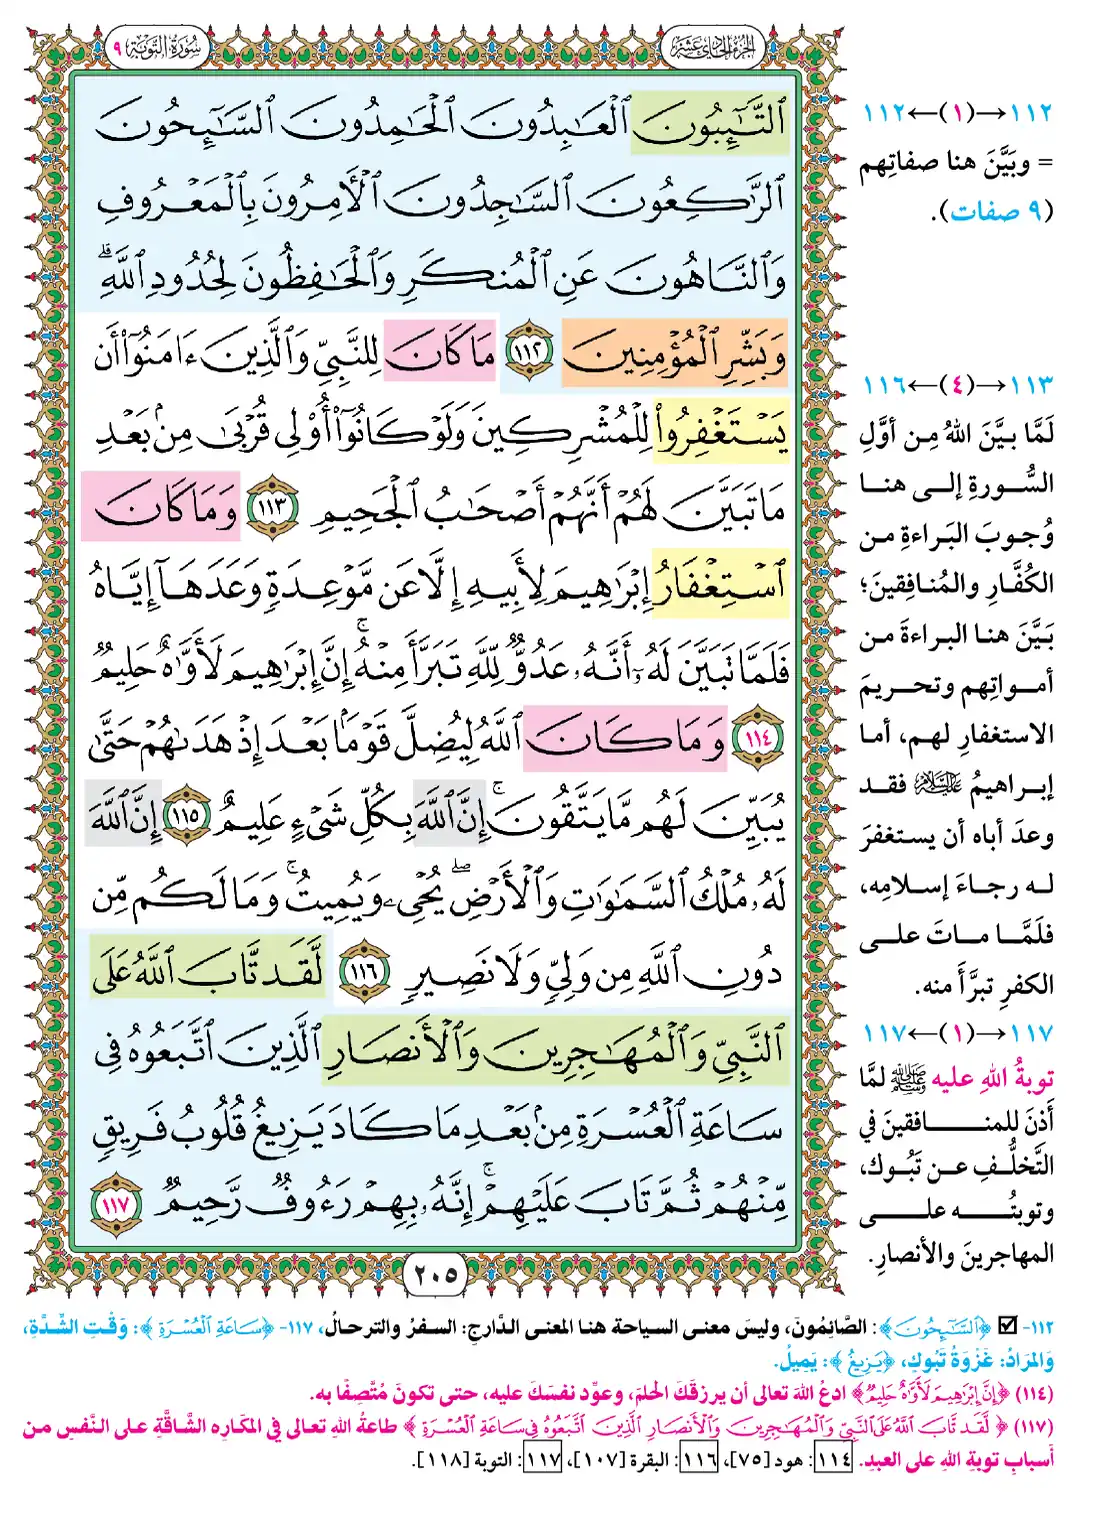 الجزء الحادي عشر
سورة التوبة ٩
ٱلتَّـٰٓئِبُونَ ٱلْعَـٰبِدُونَ ٱلْحَـٰمِدُونَ ٱلسَّـٰٓئِحُونَ
ٱلرَّٰكِعُونَ ٱلسَّـٰجِدُونَ ٱلْـَٔامِرُونَ بِٱلْمَعْرُوفِ
وَٱلنَّاهُونَ عَنِ ٱلْمُنكَرِ وَٱلْحَـٰفِظُونَ لِحُدُودِ ٱللَّهِ ۗ
وَبَشِّرِ ٱلْمُؤْمِنِينَ ١١٢ مَا كَانَ لِلنَّبِيِّ وَٱلَّذِينَ ءَامَنُوٓا۟ أَن
يَسْتَغْفِرُوا۟ لِلْمُشْرِكِينَ وَلَوْ كَانُوٓا۟ أُو۟لِي قُرْبَىٰ مِنۢ بَعْدِ
مَا تَبَيَّنَ لَهُمْ أَنَّهُمْ أَصْحَـٰبُ ٱلْجَحِيمِ ١١٣ وَمَا كَانَ
ٱسْتِغْفَارُ إِبْرَٰهِيمَ لِأَبِيهِ إِلَّا عَن مَّوْعِدَةٍ وَعَدَهَآ إِيَّاهُ
فَلَمَّا تَبَيَّنَ لَهُۥٓ أَنَّهُۥ عَدُوٌّ لِّلَّهِ تَبَرَّأَ مِنْهُ ۚ إِنَّ إِبْرَٰهِيمَ لَأَوَّٰهٌ حَلِيمٌ
١١٤ وَمَا كَانَ ٱللَّهُ لِيُضِلَّ قَوْمًۢا بَعْدَ إِذْ هَدَىٰهُمْ حَتَّىٰ
يُبَيِّنَ لَهُم مَّا يَتَّقُونَ ۚ إِنَّ ٱللَّهَ بِكُلِّ شَىْءٍ عَلِيمٌ ١١٥ إِنَّ ٱللَّهَ
لَهُۥ مُلْكُ ٱلسَّمَـٰوَٰتِ وَٱلْأَرْضِ ۖ يُحْىِۦ وَيُمِيتُ ۚ وَمَا لَكُم مِّن
دُونِ ٱللَّهِ مِن وَلِيٍّ وَلَا نَصِيرٍ ١١٦ لَّقَد تَّابَ ٱللَّهُ عَلَى
ٱلنَّبِيِّ وَٱلْمُهَـٰجِرِينَ وَٱلْأَنصَارِ ٱلَّذِينَ ٱتَّبَعُوهُ فِي
سَاعَةِ ٱلْعُسْرَةِ مِنۢ بَعْدِ مَا كَادَ يَزِيغُ قُلُوبُ فَرِيقٍ
مِّنْهُمْ ثُمَّ تَابَ عَلَيْهِمْ ۚ إِنَّهُۥ بِهِمْ رَءُوفٌ رَّحِيمٌ ١١٧
٢٠٥
١١٢→(١)←١١٢
= وبَيَّنَ هنا صفاتِهم
(٩ صفات).
١١٣→(٤)←١١٦
لَمَّا بيَّنَ اللهُ مِن أوَّلِ
السُّورةِ إلى هنا
وُجوبَ البَراءةِ من
الكُفَّارِ والمُنافِقينَ؛
بَيَّنَ هنا البراءةَ من
أمواتِهم وتحريمَ
الاستغفارِ لهم، أما
إبراهيمُ عليه السلام فقد
وعدَ أباه أن يستغفرَ
له رجاءَ إسلامِه،
فلَمَّا ماتَ على
الكفرِ تبرَّأَ منه.
١١٧→(١)←١١٧
توبةُ اللهِ عليه ﷺ لمَّا
أَذِنَ للمنافقينَ في
التَّخلُّفِ عن تَبُوك،
وتوبتُه على
المهاجرينَ والأنصارِ.
١١٢- ☑ ﴿ٱلسَّـٰٓئِحُونَ﴾: الصَّائِمُونَ، وليسَ معنى السياحة هنا المعنى الدَّارِج: السفرُ والترحالُ، ١١٧- ﴿سَاعَةِ ٱلْعُسْرَةِ﴾: وَقْتِ الشِّدَّةِ،
وَالمَرَادُ: غَزْوَةُ تَبُوكٍ، ﴿يَزِيغُ﴾: يَمِيلُ.
(١١٤) ﴿إِنَّ إِبْرَٰهِيمَ لَأَوَّٰهٌ حَلِيمٌ﴾ ادعُ اللهَ تعالى أن يرزقَكَ الحلمَ، وعوِّد نفسَكَ عليه، حتى تكونَ مُتَّصِفًا به.
(١١٧) ﴿لَّقَد تَّابَ ٱللَّهُ عَلَى ٱلنَّبِيِّ وَٱلْمُهَـٰجِرِينَ وَٱلْأَنصَارِ ٱلَّذِينَ ٱتَّبَعُوهُ فِي سَاعَةِ ٱلْعُسْرَةِ﴾ طاعةُ اللهِ تعالى في المكَارِه الشَّاقَّةِ على النَّفسِ من
أسبابِ توبةِ اللهِ على العبدِ. ١١٤: هود [٧٥]، ١١٦: البقرة [١٠٧]، ١١٧: التوبة [١١٨].